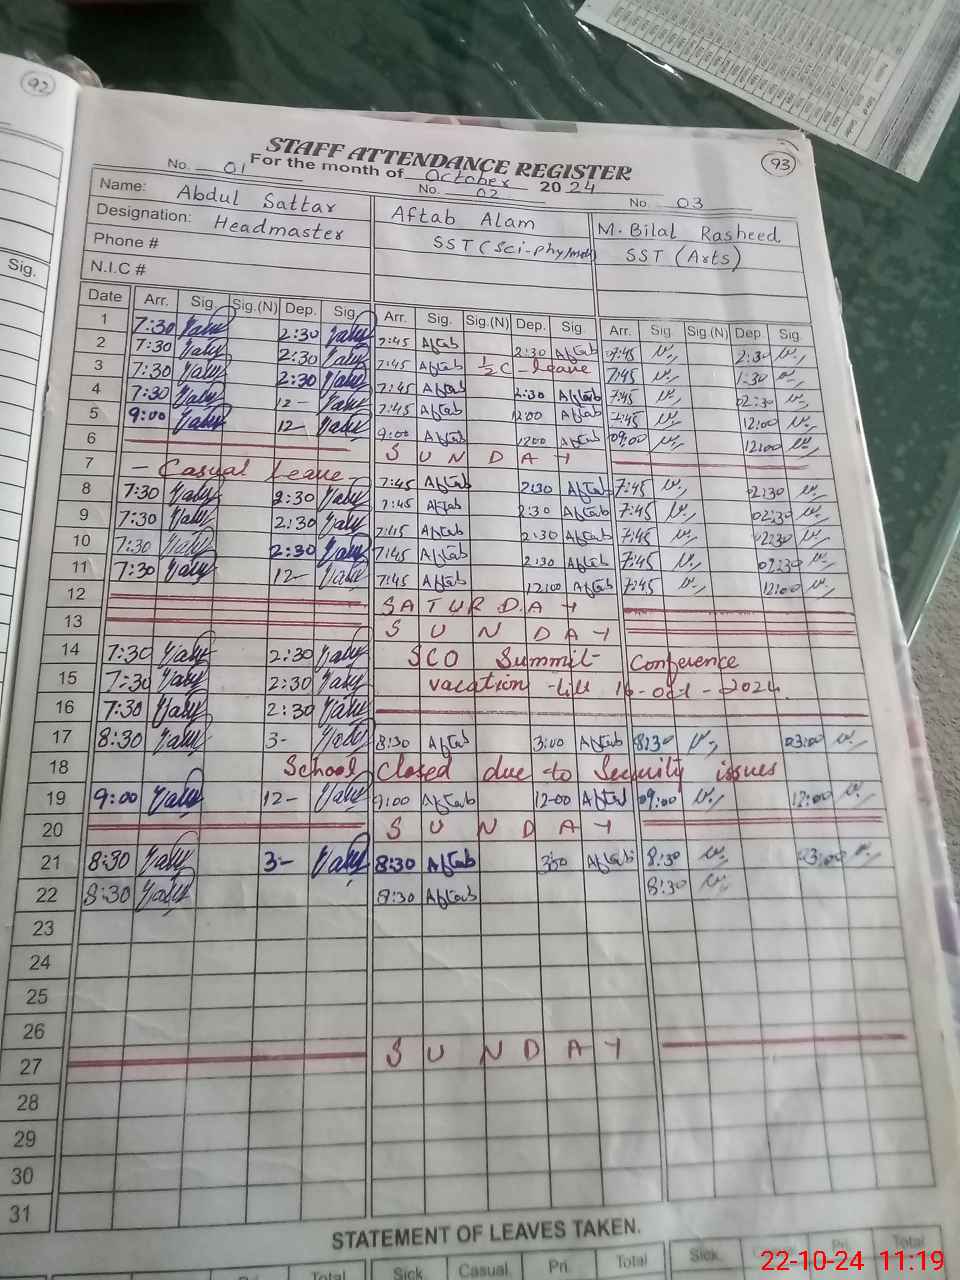 92
Sig.
93
STAFF ATTENDANCE REGISTER
For the month of October 2024
No. 01 No. 02 No. 03
Name: Abdul Sattar Aftab Alam M. Bilal Rasheed
Designation: Headmaster SST (Sci-phy/math) SST (Arts)
Phone #
N.I.C #
Date Arr. Sig. Sig.(N) Dep. Sig. Arr. Sig. Sig.(N) Dep. Sig. Arr. Sig. Sig.(N) Dep. Sig.
1 7:30 2:30 7:45 Aftab 2:30 Aftab 07:45 2:30
2 7:30 2:30 7:45 Aftab ½ C - leave 7:45 1:30
3 7:30 2:30 7:45 Aftab 2:30 Aftab 7:45 02:30
4 7:30 12- 7:45 Aftab 1200 Aftab 7:45 12:00
5 9:00 12- 9:00 Aftab 1200 Aftab 09:00 12:00
6 SUNDAY
7 - Casual Leave - 7:45 Aftab 2:30 Aftab 7:45 02:30
8 7:30 2:30 7:45 Aftab 2:30 Aftab 7:45 02:30
9 7:30 2:30 7:45 Aftab 2:30 Aftab 7:45 02:30
10 7:30 2:30 7:45 Aftab 2:30 Aftab 7:45 02:30
11 7:30 12- 7:45 Aftab 12:00 Aftab 7:45 12:00
12 SATURDAY
13 SUNDAY
14 7:30 2:30 SCO Summit Conference
15 7:30 2:30 vacation till 16-oct-2024.
16 7:30 2:30
17 8:30 3- 8:30 Aftab 3:00 Aftab 8:30 03:00
18 School Closed due to Security issues
19 9:00 12- 9:00 Aftab 12-00 Aftab 09:00 12:00
20 SUNDAY
21 8:30 3- 8:30 Aftab 3:00 Aftab 8:30 03:00
22 8:30 8:30 Aftab 8:30
23
24
25
26
27 SUNDAY
28
29
30
31
STATEMENT OF LEAVES TAKEN.
Pri. Total Sick. Casual. Pri. Total Sick. Pri. Total
22-10-24 11:19